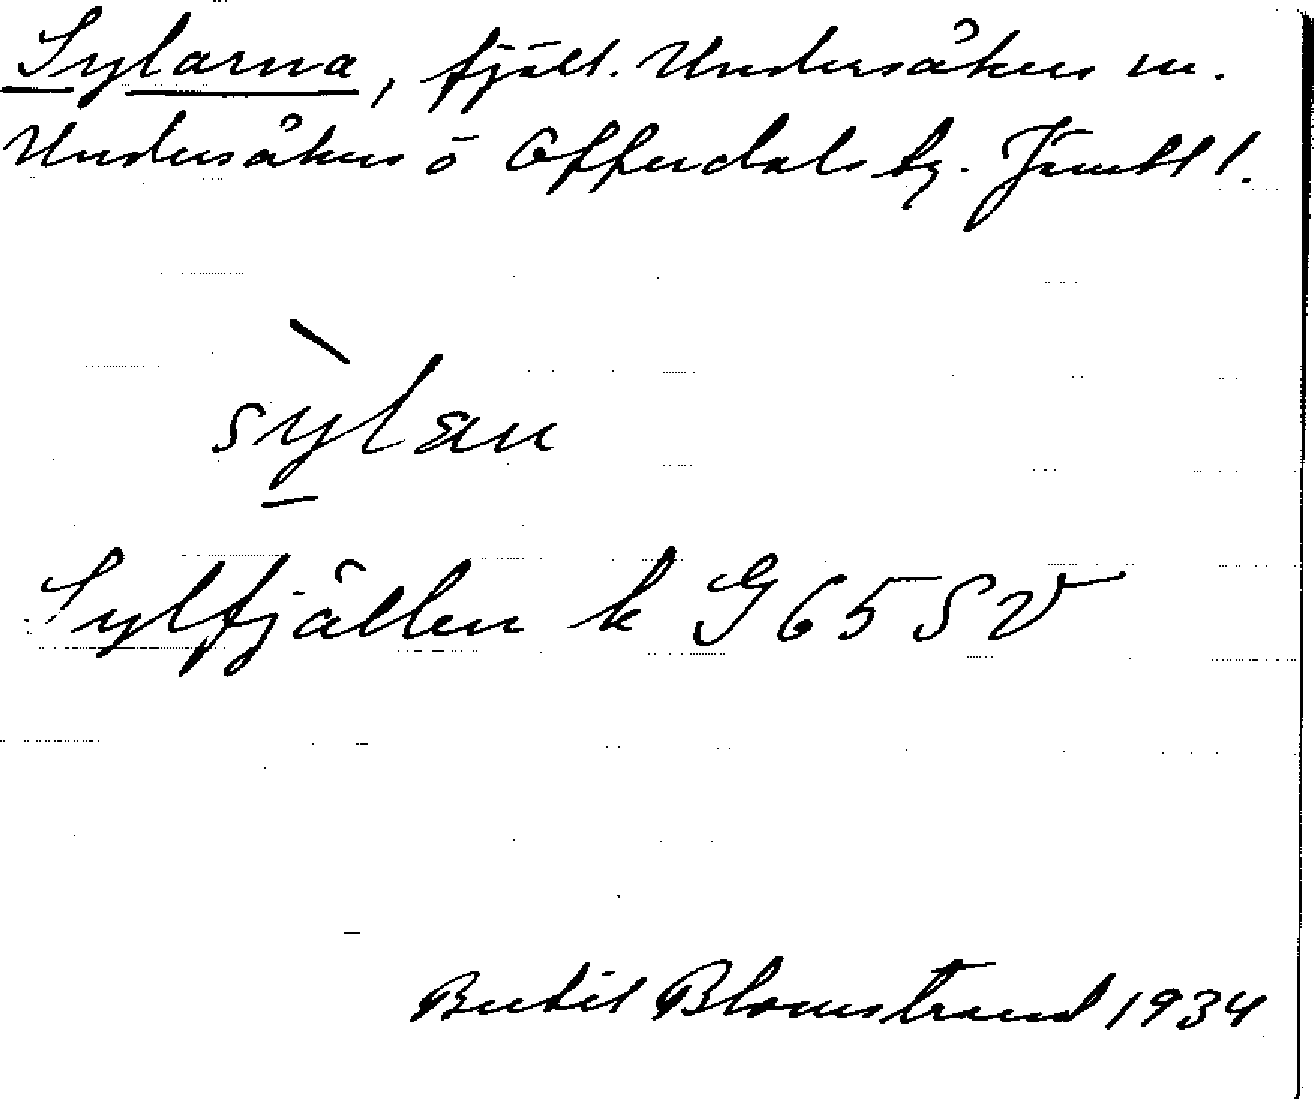 Sylarna, fjäll. Undersåkers sn.
Undersåkers o Offerdals tg. Jämtl l.
sỳ̱lan
Sylfjällen k G 65 SV
Bertil Blomstrand 1934